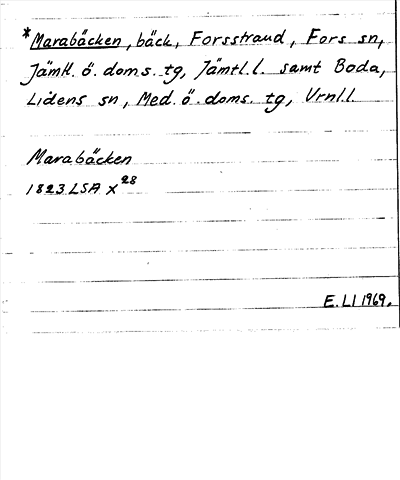 *Marabäcken, bäck, Forsstrand, Fors sn,
Jämtl. ö. doms. tg, Jämtl.l. samt Boda,
Lidens sn, Med. ö. doms. tg, Vrnl.l.
Marabäcken
1823 LSA X28
E. LI 1969.